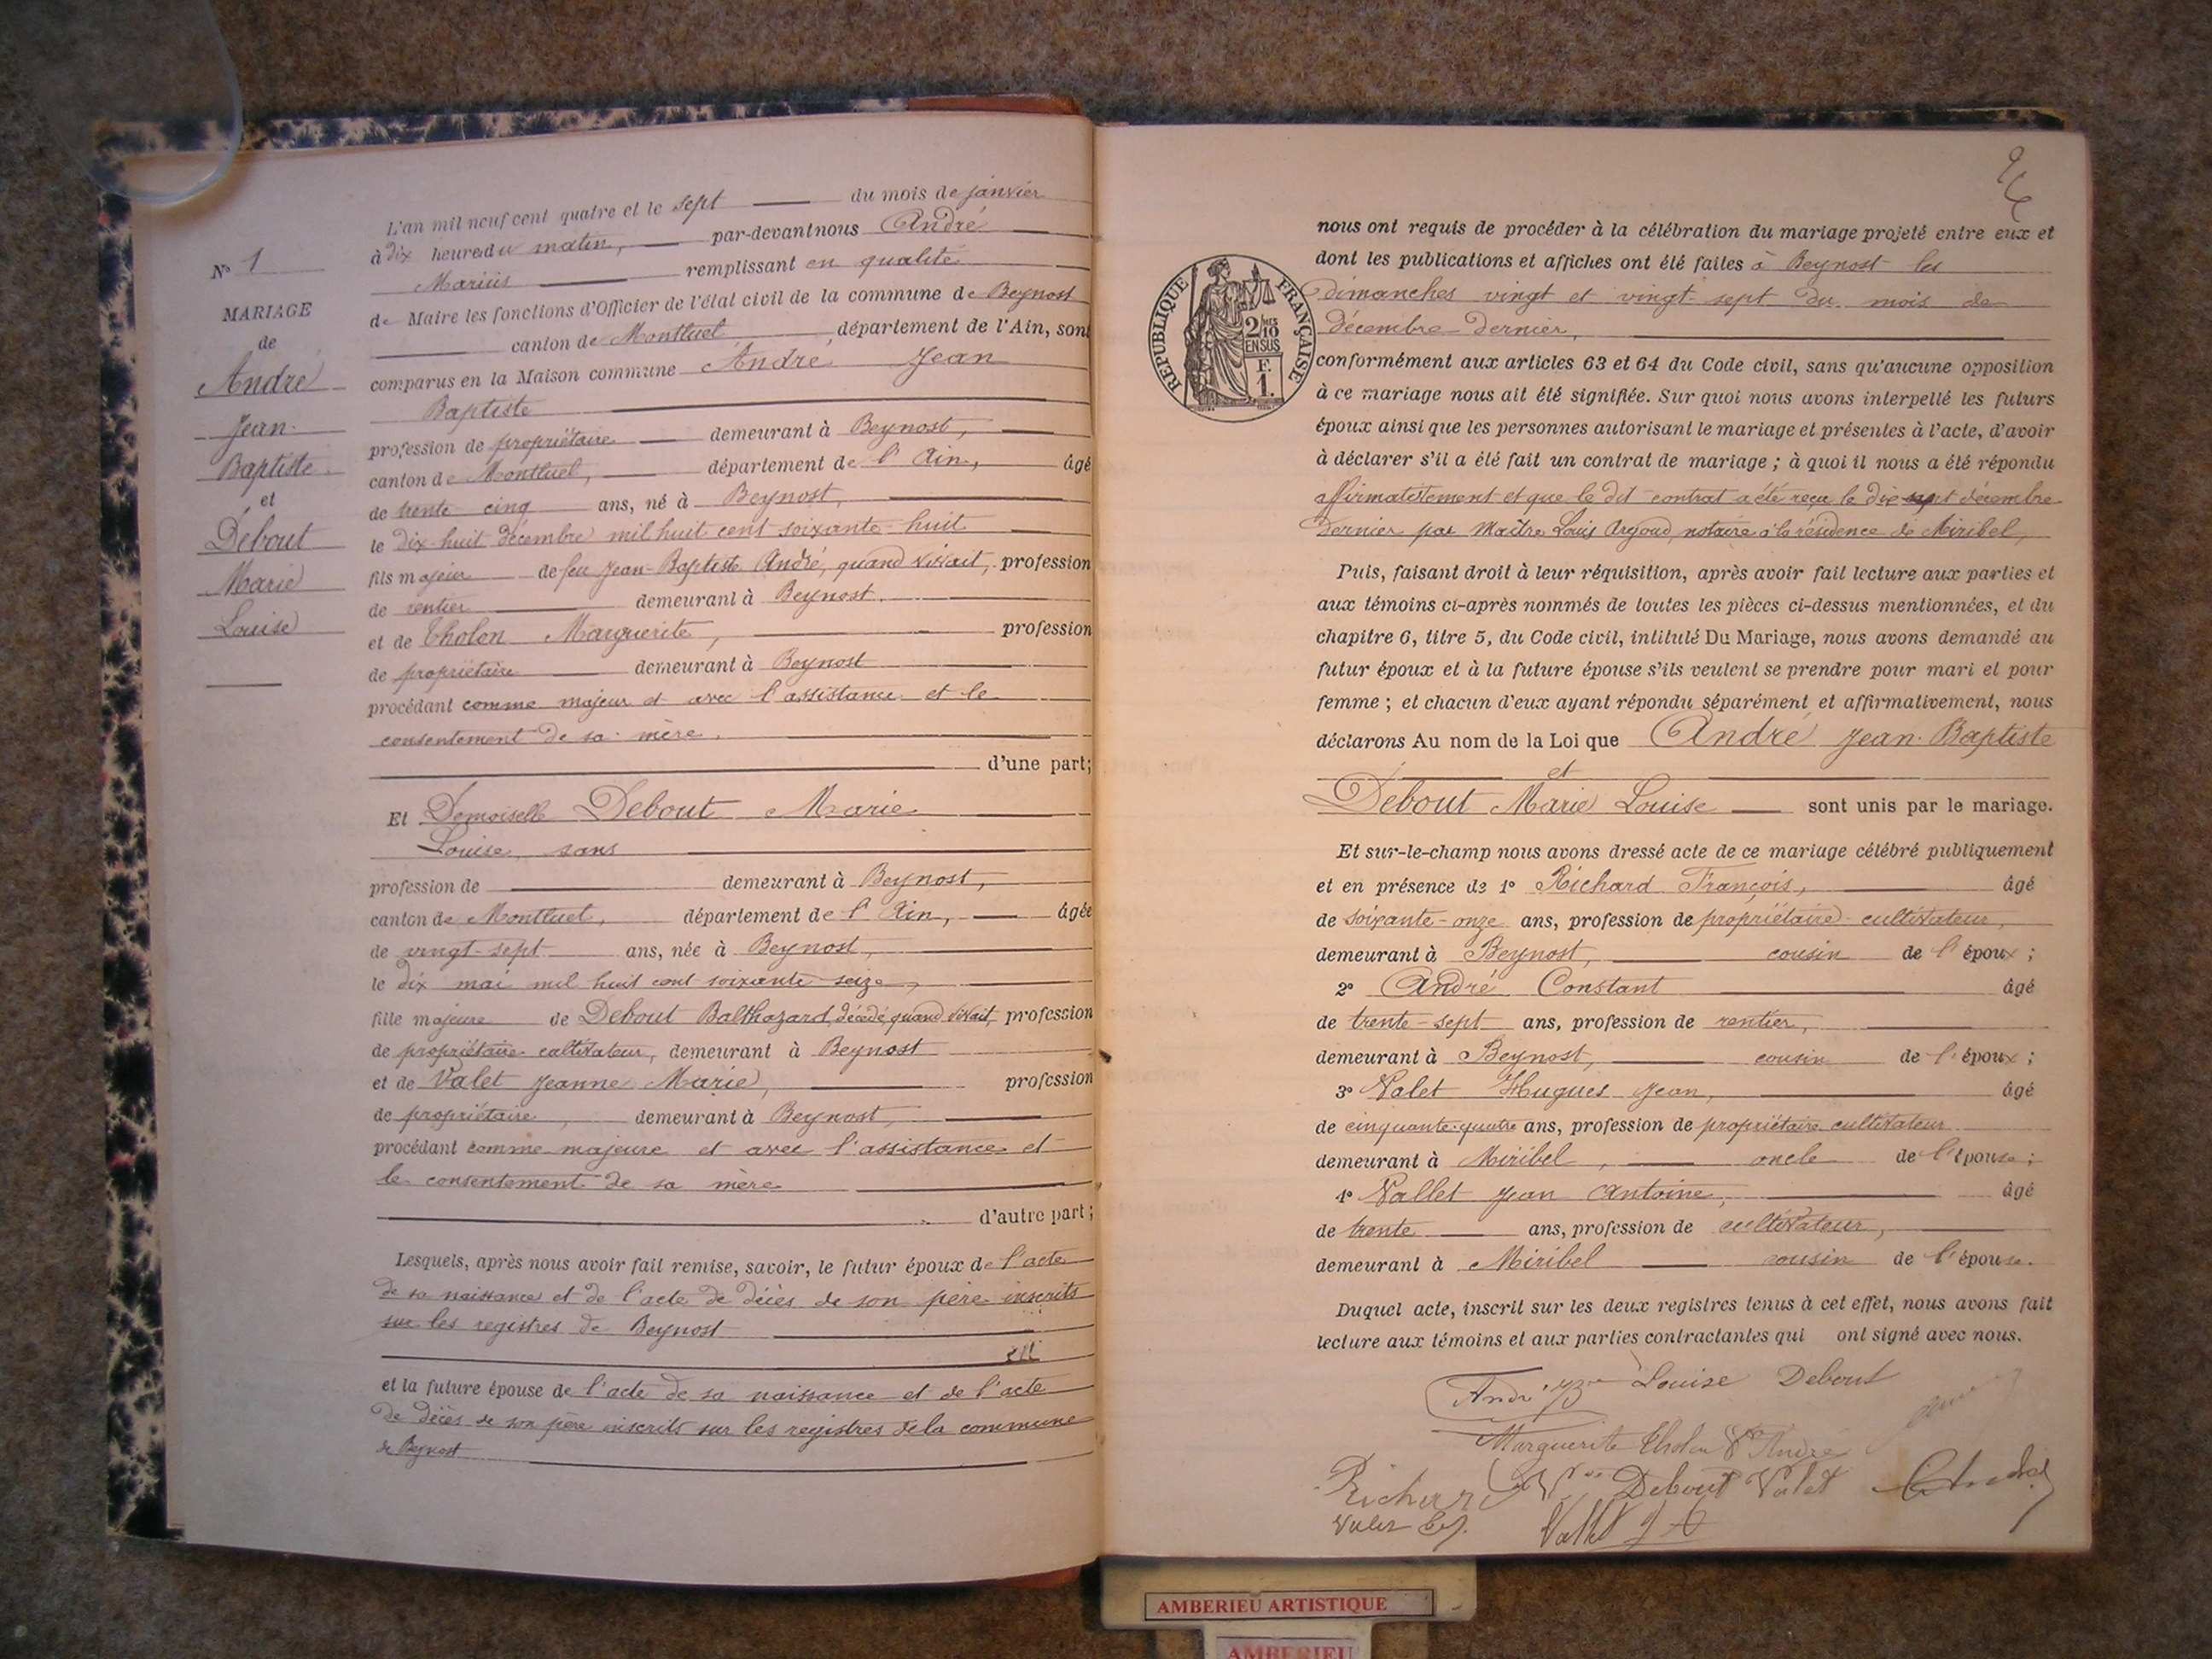 N° 1
MARIAGE
de
André
Jean
Baptiste
et
Debout
Marie
Louise
L'an mil neuf cent quatre et le sept du mois de janvier
à dix heures du matin, par-devant nous André
Marius remplissant en qualité
de Maire les fonctions d'Officier de l'état civil de la commune de Beynost
canton de Montluel département de l'Ain, sont
comparus en la Maison commune André Jean
Baptiste
profession de propriétaire demeurant à Beynost,
canton de Montluel, département de l'Ain, âgé
de trente cinq ans, né à Beynost,
le dix-huit décembre mil huit cent soixante-huit
fils majeur de feu Jean-Baptiste André, quand vivait, profession
de rentier demeurant à Beynost.
et de Tholon Marguerite, profession
de propriétaire demeurant à Beynost
procédant comme majeur et avec l'assistance et le
consentement de sa mère.
d'une part;
Et Demoiselle Debout Marie
Louise, sans
profession de demeurant à Beynost,
canton de Montluel, département de l'Ain, âgée
de vingt-sept ans, née à Beynost,
le dix mai mil huit cent soixante-seize,
fille majeure de Debout Balthazard, décédé, quand vivait, profession
de propriétaire-cultivateur, demeurant à Beynost
et de Valet Jeanne Marie, profession
de propriétaire, demeurant à Beynost,
procédant comme majeure et avec l'assistance et
le consentement de sa mère
d'autre part;
Lesquels, après nous avoir fait remise, savoir, le futur époux de l'acte
de sa naissance et de l'acte de décès de son père inscrits
sur les registres de Beynost
et la future épouse de l'acte de sa naissance et de l'acte
de décès de son père inscrits sur les registres de la commune
de Beynost
RÉPUBLIQUE FRANÇAISE
2/10 MES
EN SUS
F.
1.
nous ont requis de procéder à la célébration du mariage projeté entre eux et
dont les publications et affiches ont été faites à Beynost les
dimanches vingt et vingt-sept du mois de
décembre dernier,
conformément aux articles 63 et 64 du Code civil, sans qu'aucune opposition
à ce mariage nous ait été signifiée. Sur quoi nous avons interpellé les futurs
époux ainsi que les personnes autorisant le mariage et présentes à l'acte, d'avoir
à déclarer s'il a été fait un contrat de mariage ; à quoi il nous a été répondu
affirmativement et que le dit contrat a été reçu le dix-sept décembre
dernier par Maître Louis notaire à la résidence de Miribel,
Puis, faisant droit à leur réquisition, après avoir fait lecture aux parties et
aux témoins ci-après nommés de toutes les pièces ci-dessus mentionnées, et du
chapitre 6, titre 5, du Code civil, intitulé Du Mariage, nous avons demandé au
futur époux et à la future épouse s'ils veulent se prendre pour mari et pour
femme ; et chacun d'eux ayant répondu séparément et affirmativement, nous
déclarons Au nom de la Loi que André Jean-Baptiste
et
Debout Marie Louise sont unis par le mariage.
Et sur-le-champ nous avons dressé acte de ce mariage célébré publiquement
et en présence de 1° Richard François, âgé
de soixante-onze ans, profession de propriétaire-cultivateur,
demeurant à Beynost, cousin de l'époux ;
2° André Constant âgé
de trente-sept ans, profession de rentier,
demeurant à Beynost, cousin de l'époux ;
3° Valet Hugues Jean, âgé
de cinquante-quatre ans, profession de propriétaire cultivateur
demeurant à Miribel, oncle de l'épouse ;
4° Vallet Jean Antoine, âgé
de trente ans, profession de cultivateur,
demeurant à Miribel cousin de l'épouse.
Duquel acte, inscrit sur les deux registres tenus à cet effet, nous avons fait
lecture aux témoins et aux parties contractantes qui ont signé avec nous.
Louise Debout
Marguerite Tholon Vve André
Richard Vve Debout Valet
Vallet J A
AMBERIEU ARTISTIQUE
AMBERIEU